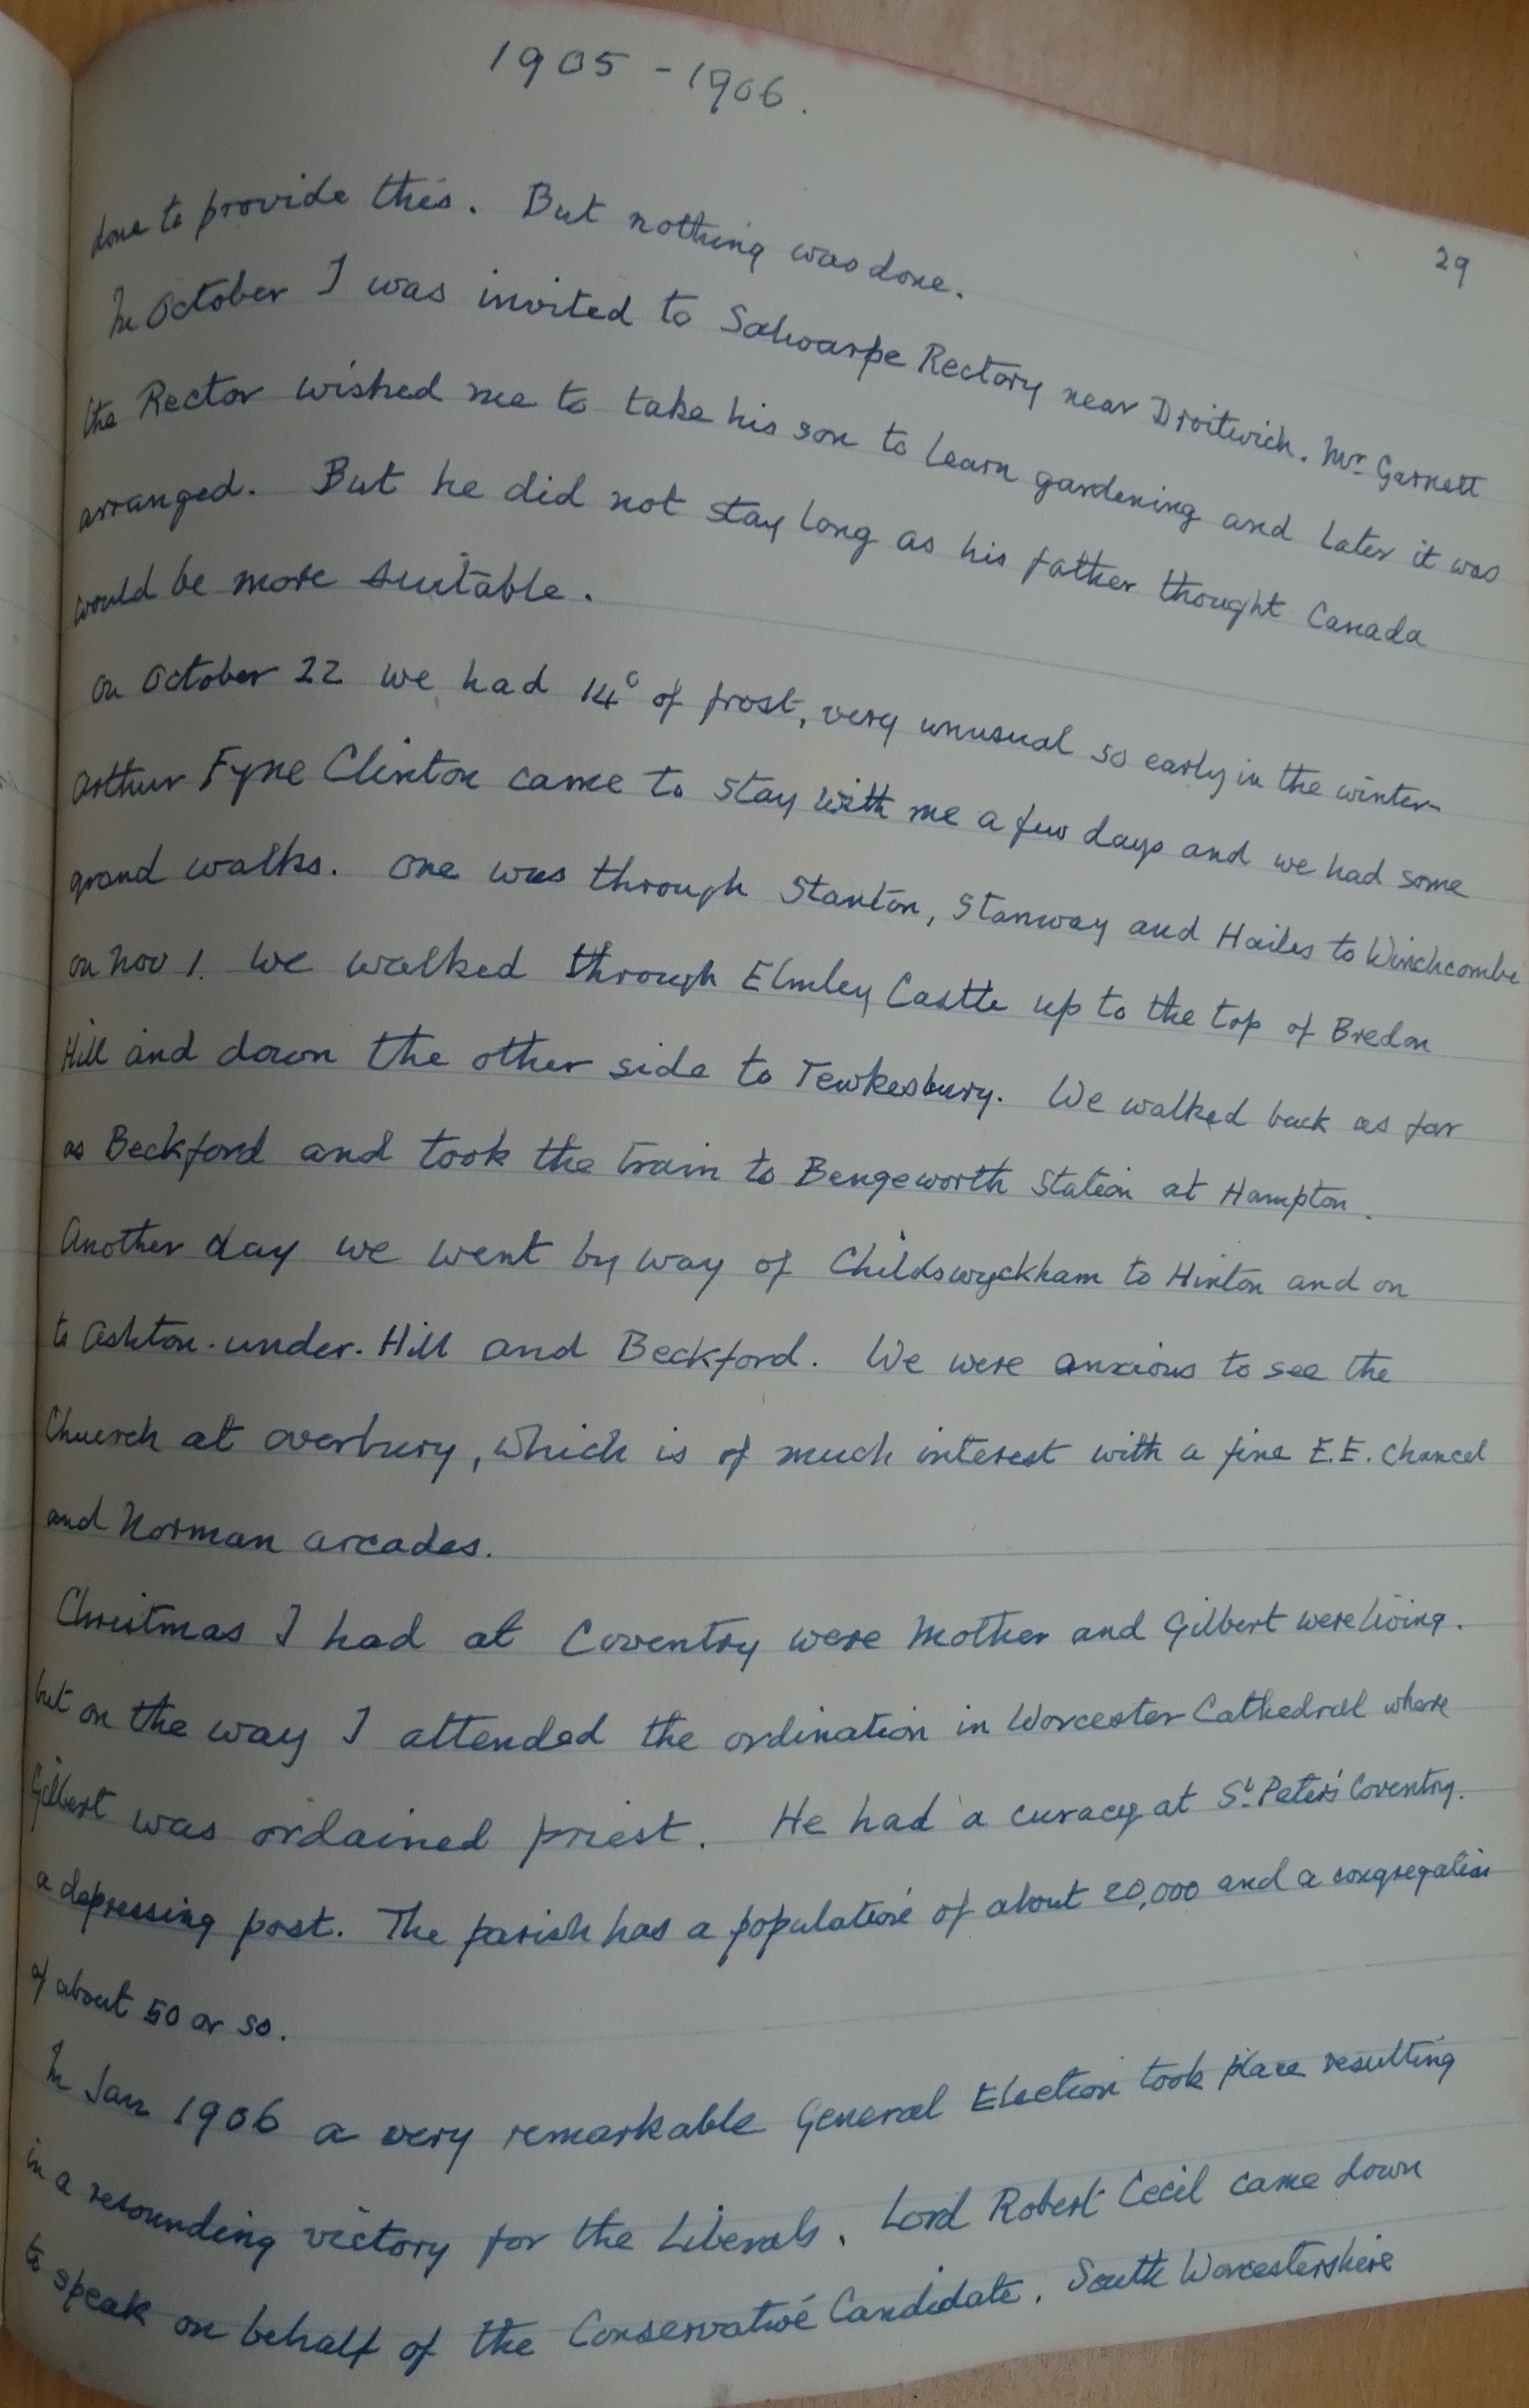 1905 - 1906.
29
done to provide this. But nothing was done.
In October I was invited to Salwarpe Rectory near Droitwich. Mr Garnett
the Rector wished me to take his son to learn gardening and later it was
arranged. But he did not stay long as his father thought Canada
would be more suitable.
On October 22 we had 14° of frost, very unusual so early in the winter-
Arthur Fyne Clinton came to stay with me a few days and we had some
grand walks. One was through Stanton, Stanway and Hailes to Winchcombe
on Nov 1. We walked through Elmley Castle up to the top of Bredon
Hill and down the other side to Tewkesbury. We walked back as far
as Beckford and took the train to Bengeworth Station at Hampton.
Another day we went by way of Childswyckham to Hinton and on
to Ashton-under-Hill and Beckford. We were anxious to see the
Church at Overbury, which is of much interest with a fine E.E. Chancel
and Norman arcades.
Christmas I had at Coventry were Mother and Gilbert were living.
but on the way I attended the ordination in Worcester Cathedral where
Gilbert was ordained priest. He had a curacy at St Peter's Coventry.
a depressing post. The parish has a population of about 20,000 and a congregation
of about 50 or so.
In Jan 1906 a very remarkable General Election took place resulting
in a resounding victory for the Liberals. Lord Robert Cecil came down
to speak on behalf of the Conservative Candidate. South Worcestershire